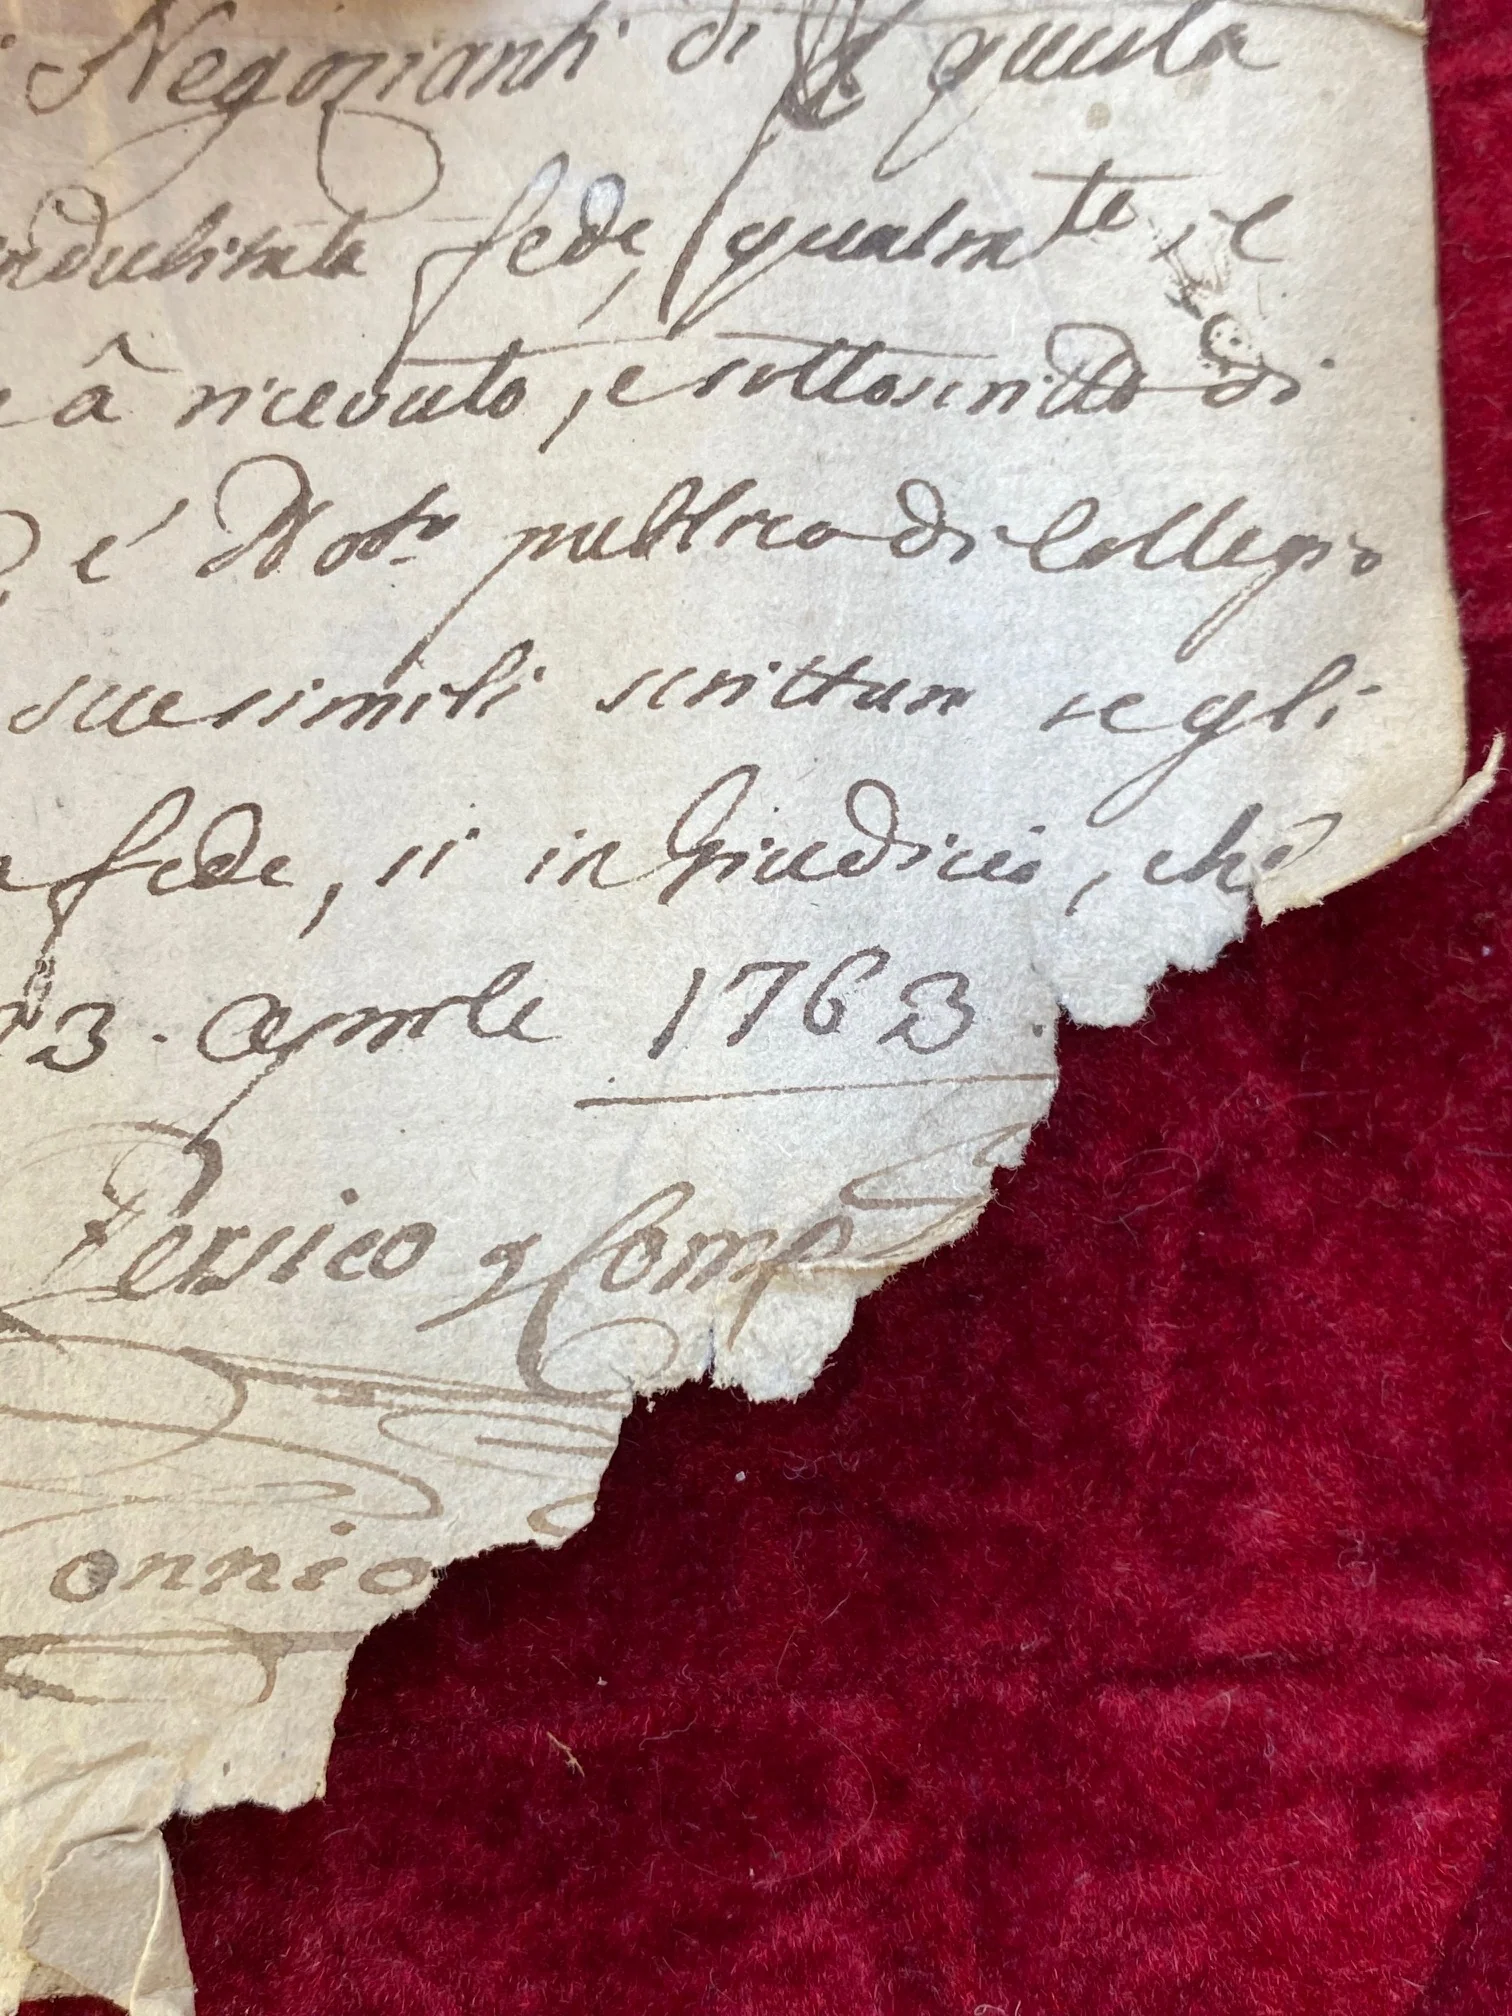 Negozianti di questa
indubitata fede, qualm.te, e
â riceuuto, e sottoscritto di
, é Not.r publico di Collegio
sue simili scritture se gli
fede, si in Giudicio, che
3. Aprile 1763.
Persico q Comp
onnio